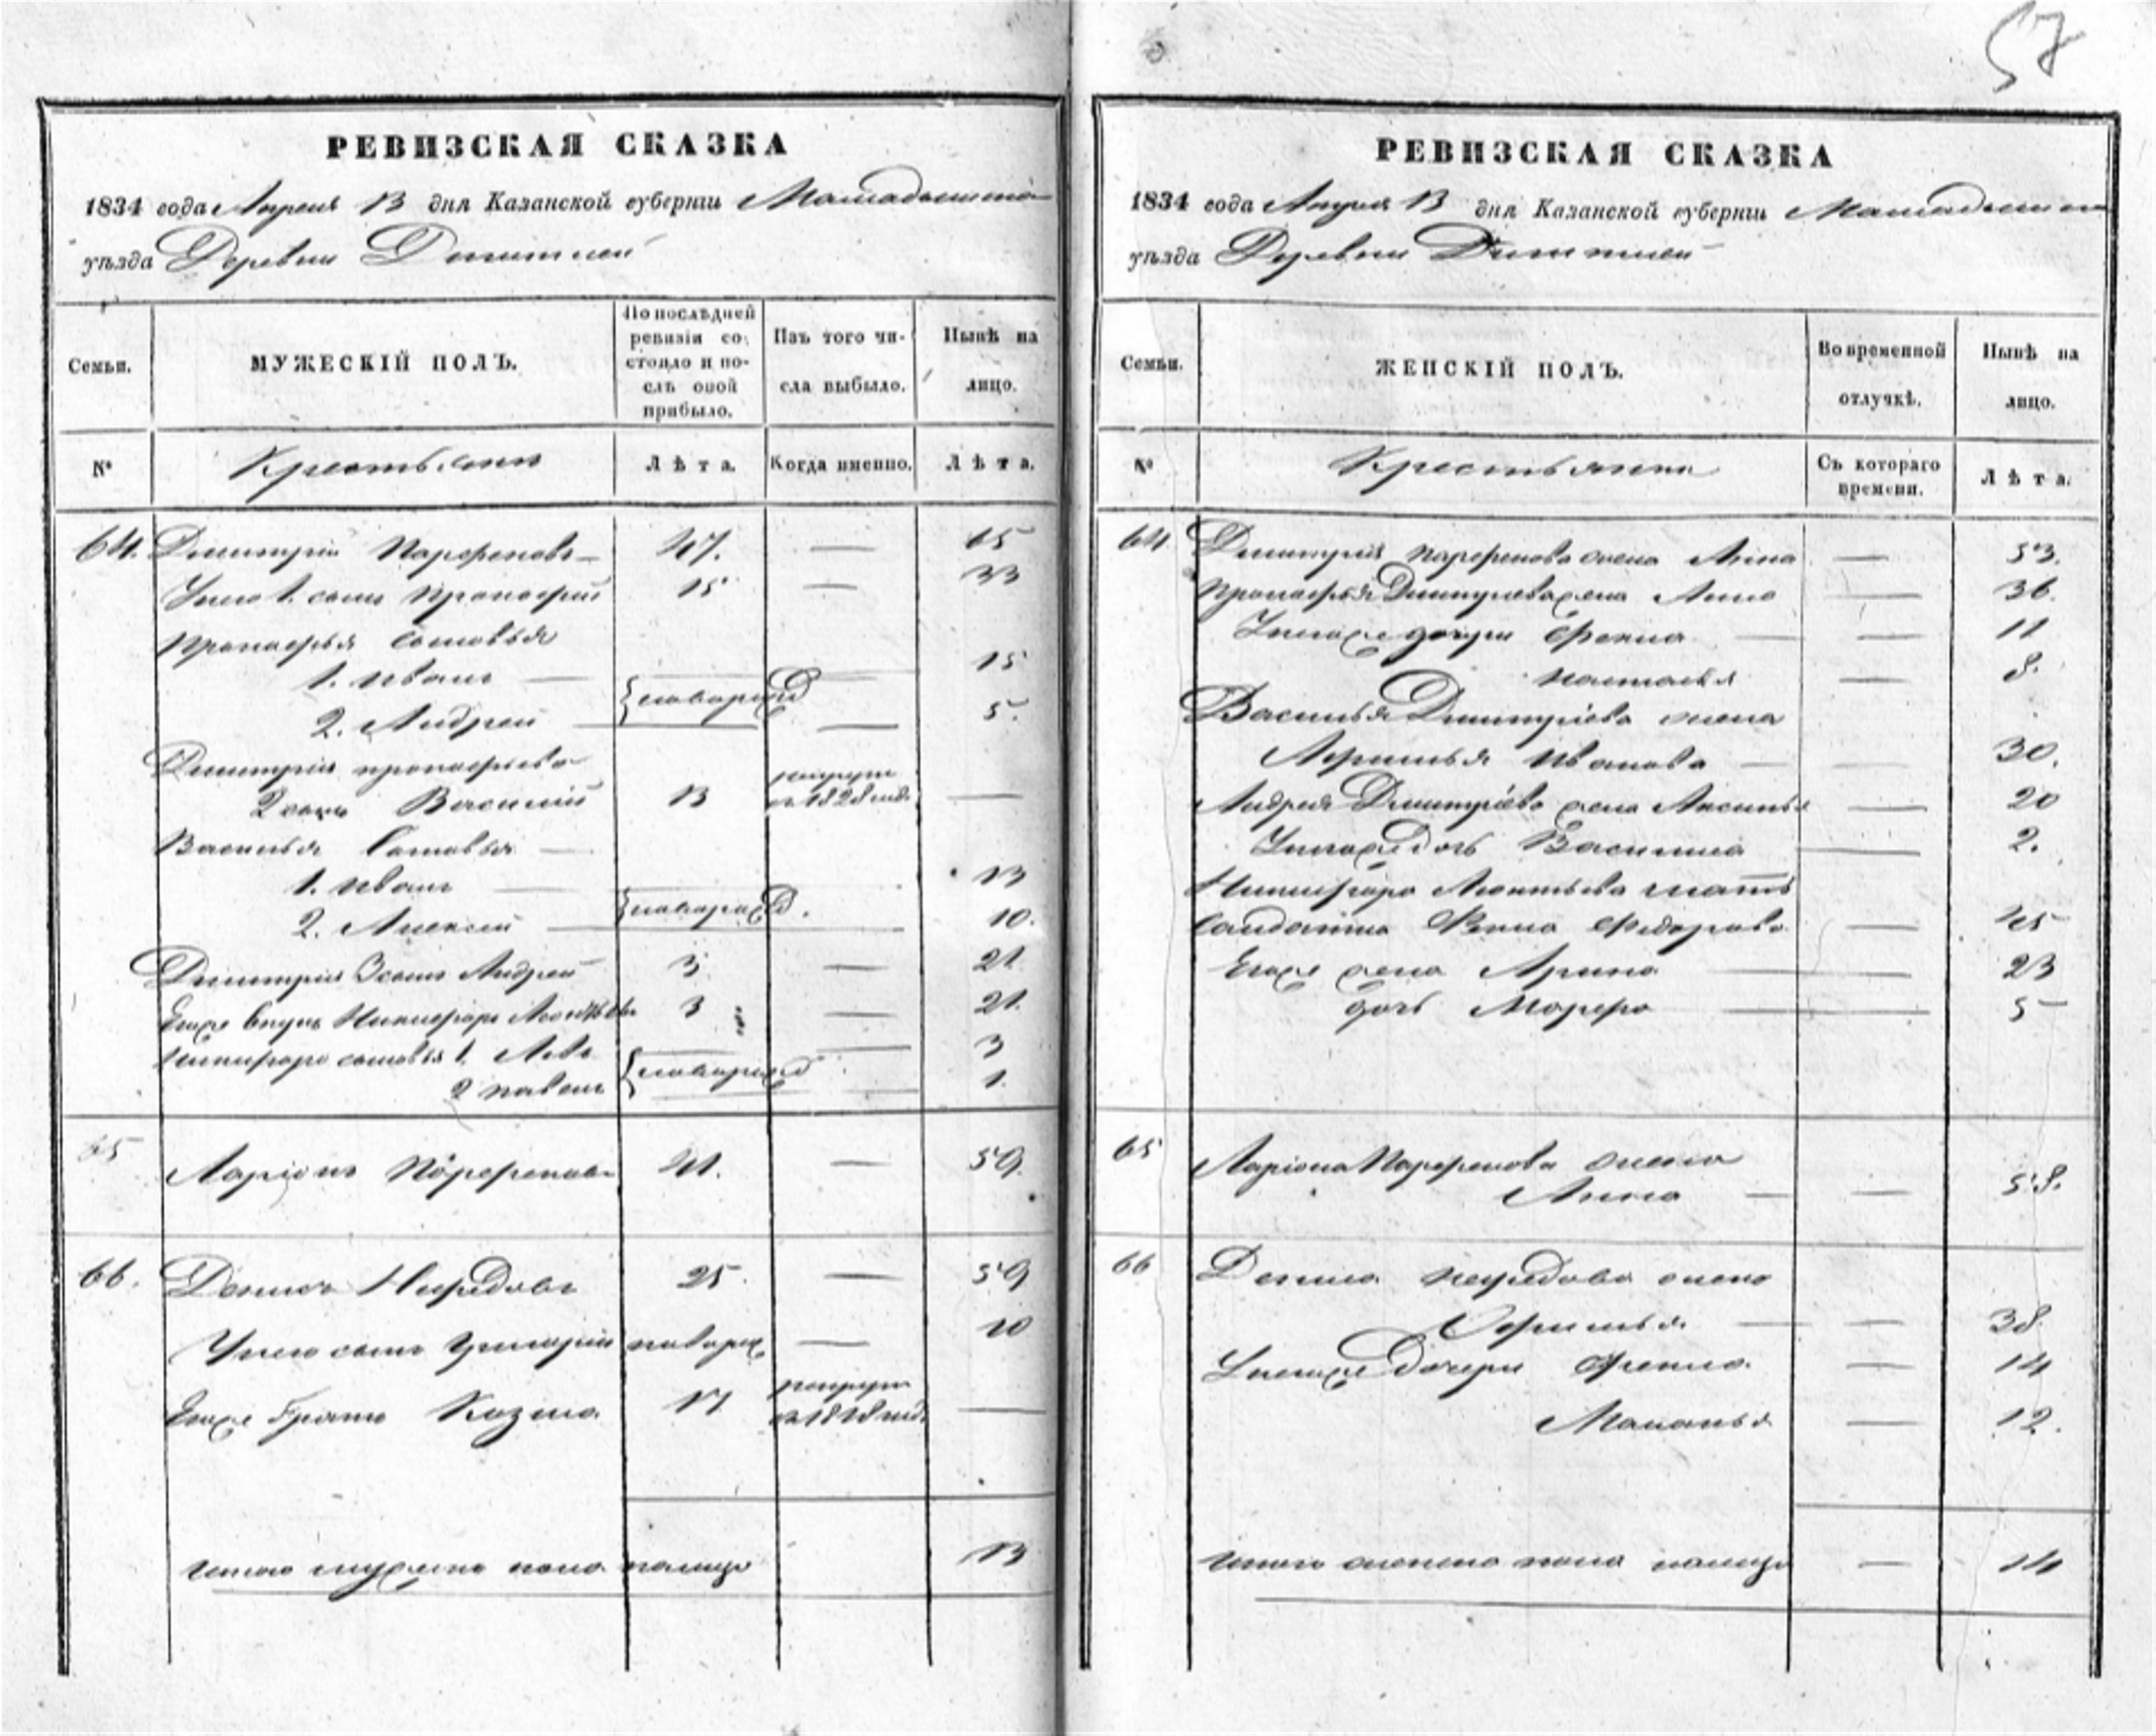 57
РЕВИЗСКАЯ СКАЗКА
1834 года Апреля 13 дня Казанской губернии Мамадышского
уѣзда Деревни
Семьи.
МУЖЕСКІЙ ПОЛЪ.
По послѣдней ревизіи состояло и послѣ оной прибыло.
Изъ того числа выбыло.
Нынѣ на лицо.
№
Крестьяни
Лѣта.
Когда именно.
Лѣта.
64. Дмитрій Парфеновъ 47. — 65
У него 1. сынъ Прокофий 15 — 33
Прокофья сыновья
1. Иванъ — 15
2. Андрей — новорожд — 5.
Дмитрия Прокофьева
2 сынъ Василий 13 рекрут в 1828 годе —
Василья сыновья —
1. Иванъ — 13
2. Алексей — новорожд. 10.
Дмитрия 3 сынъ Андрей 3 — 21
Егоже внукъ Никифоръ Леонтьевъ 3 — 21.
Никифора сыновья 1. Левъ 3
2 Павелъ новорожд 1.
65 Ларіонъ Парфеновъ 41. — 59.
66. Денисъ Нефедовъ 25 — 59
У него сынъ Григорий новорож — 10
Егоже братъ Козма 17 рекрут в 1818 годе —
Итого мужеска пола налицо 13
РЕВИЗСКАЯ СКАЗКА
1834 года Апреля 13 дня Казанской губернии Мамадышского
уѣзда Деревни
Семьи.
ЖЕНСКІЙ ПОЛЪ.
Во временной отлучкѣ.
Нынѣ на лицо.
№
Крестьянки
Съ котораго времени.
Лѣта.
64 Дмитрия Парфенова жена Анна — 53.
Прокофья Дмитриева жена Анна — 36.
У него же дочери Фекла — 11
Настасья — 8.
Василья Дмитріева жена
Афимья Иванова — 30.
Андрея Дмитріева жена Аксинья — 20
У него же дочь Василиса — 2.
Никифора Леонтьева мать
солдатка Федорова — 45
Егоже жена Арина — 23
дочь Марфа — 5
65 Ларіона Парфенова жена
Анна — 58.
66 Дениса Нефедова жена
Офимья — 38
У него же дочери Фекла — 14
Маланья — 12.
Итого женска пола налицо — 14